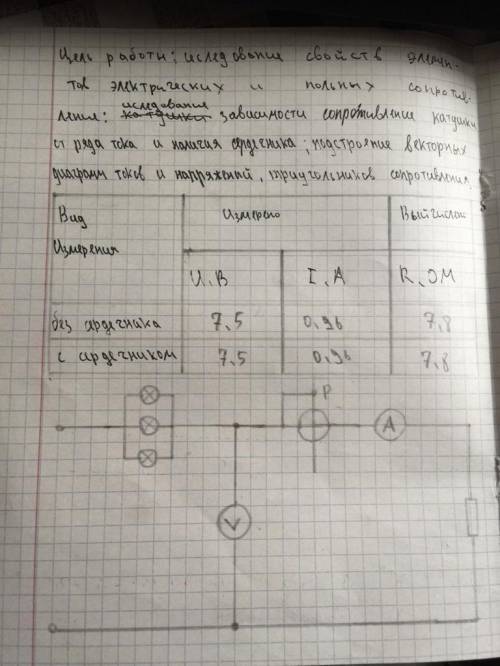 Цель работы: иследование свойств элемен-
тов электрических и польных сопротив-
ления: иследование зависимости сопротивление катушки
от рода тока и налигия сердечника; подстроение векторных
диаграмм токов и напряжений, триугольников сопротивления.
Вид Измерено Вычислен
Измерения
U, В I, А R, ОМ
без сердечника 7,5 0,96 7,8
с сердечником 7,5 0,96 7,8
P
A
V